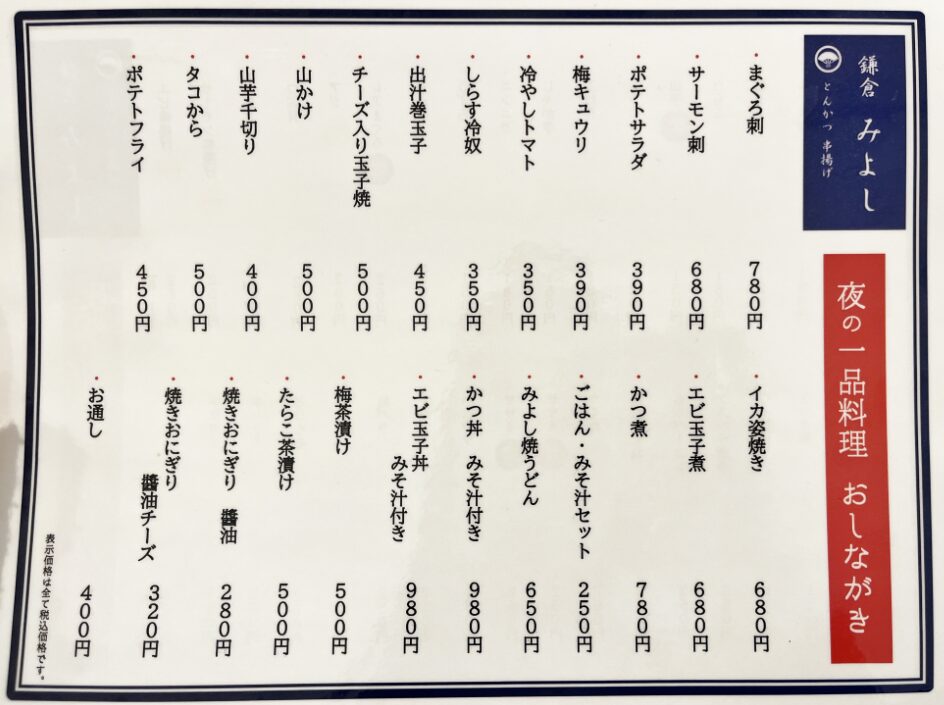 鎌倉 みよし
とんかつ 串揚げ
夜の一品料理 おしながき
・まぐろ刺 780円
・サーモン刺 680円
・ポテトサラダ 390円
・梅キュウリ 390円
・冷やしトマト 350円
・しらす冷奴 350円
・出汁巻玉子 450円
・チーズ入り玉子焼 500円
・山かけ 500円
・山芋千切り 400円
・タコから 500円
・ポテトフライ 450円
・イカ姿焼き 680円
・エビ玉子煮 680円
・かつ煮 780円
・ごはん・みそ汁セット 250円
・みよし焼うどん 650円
・かつ丼 みそ汁付き 980円
・エビ玉子丼
みそ汁付き 980円
・梅茶漬け 500円
・たらこ茶漬け 500円
・焼きおにぎり 醬油 280円
・焼きおにぎり
醬油チーズ 320円
・お通し 400円
表示価格は全て税込価格です。